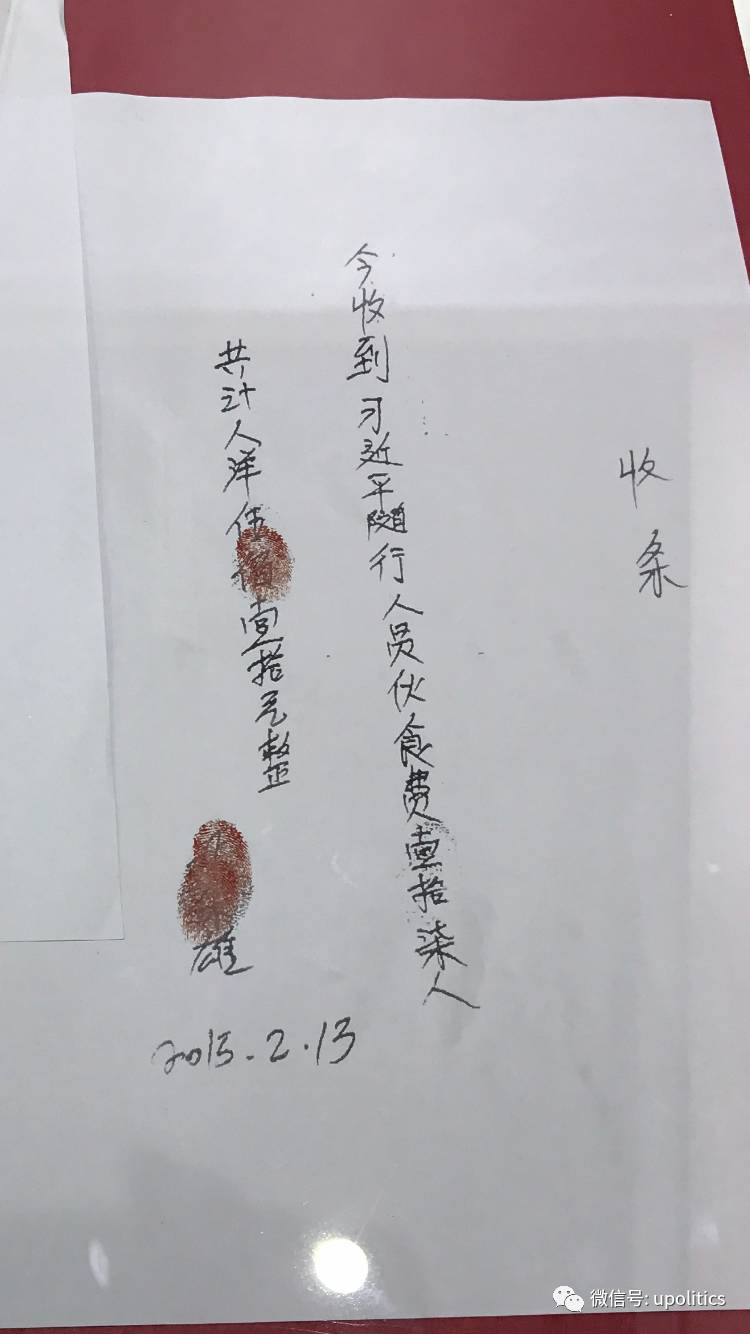 收条
今收到习近平随行人员伙食费壹拾柒人
共计人洋伍佰壹拾元整
雄
2015.2.13
微信号: upolitics